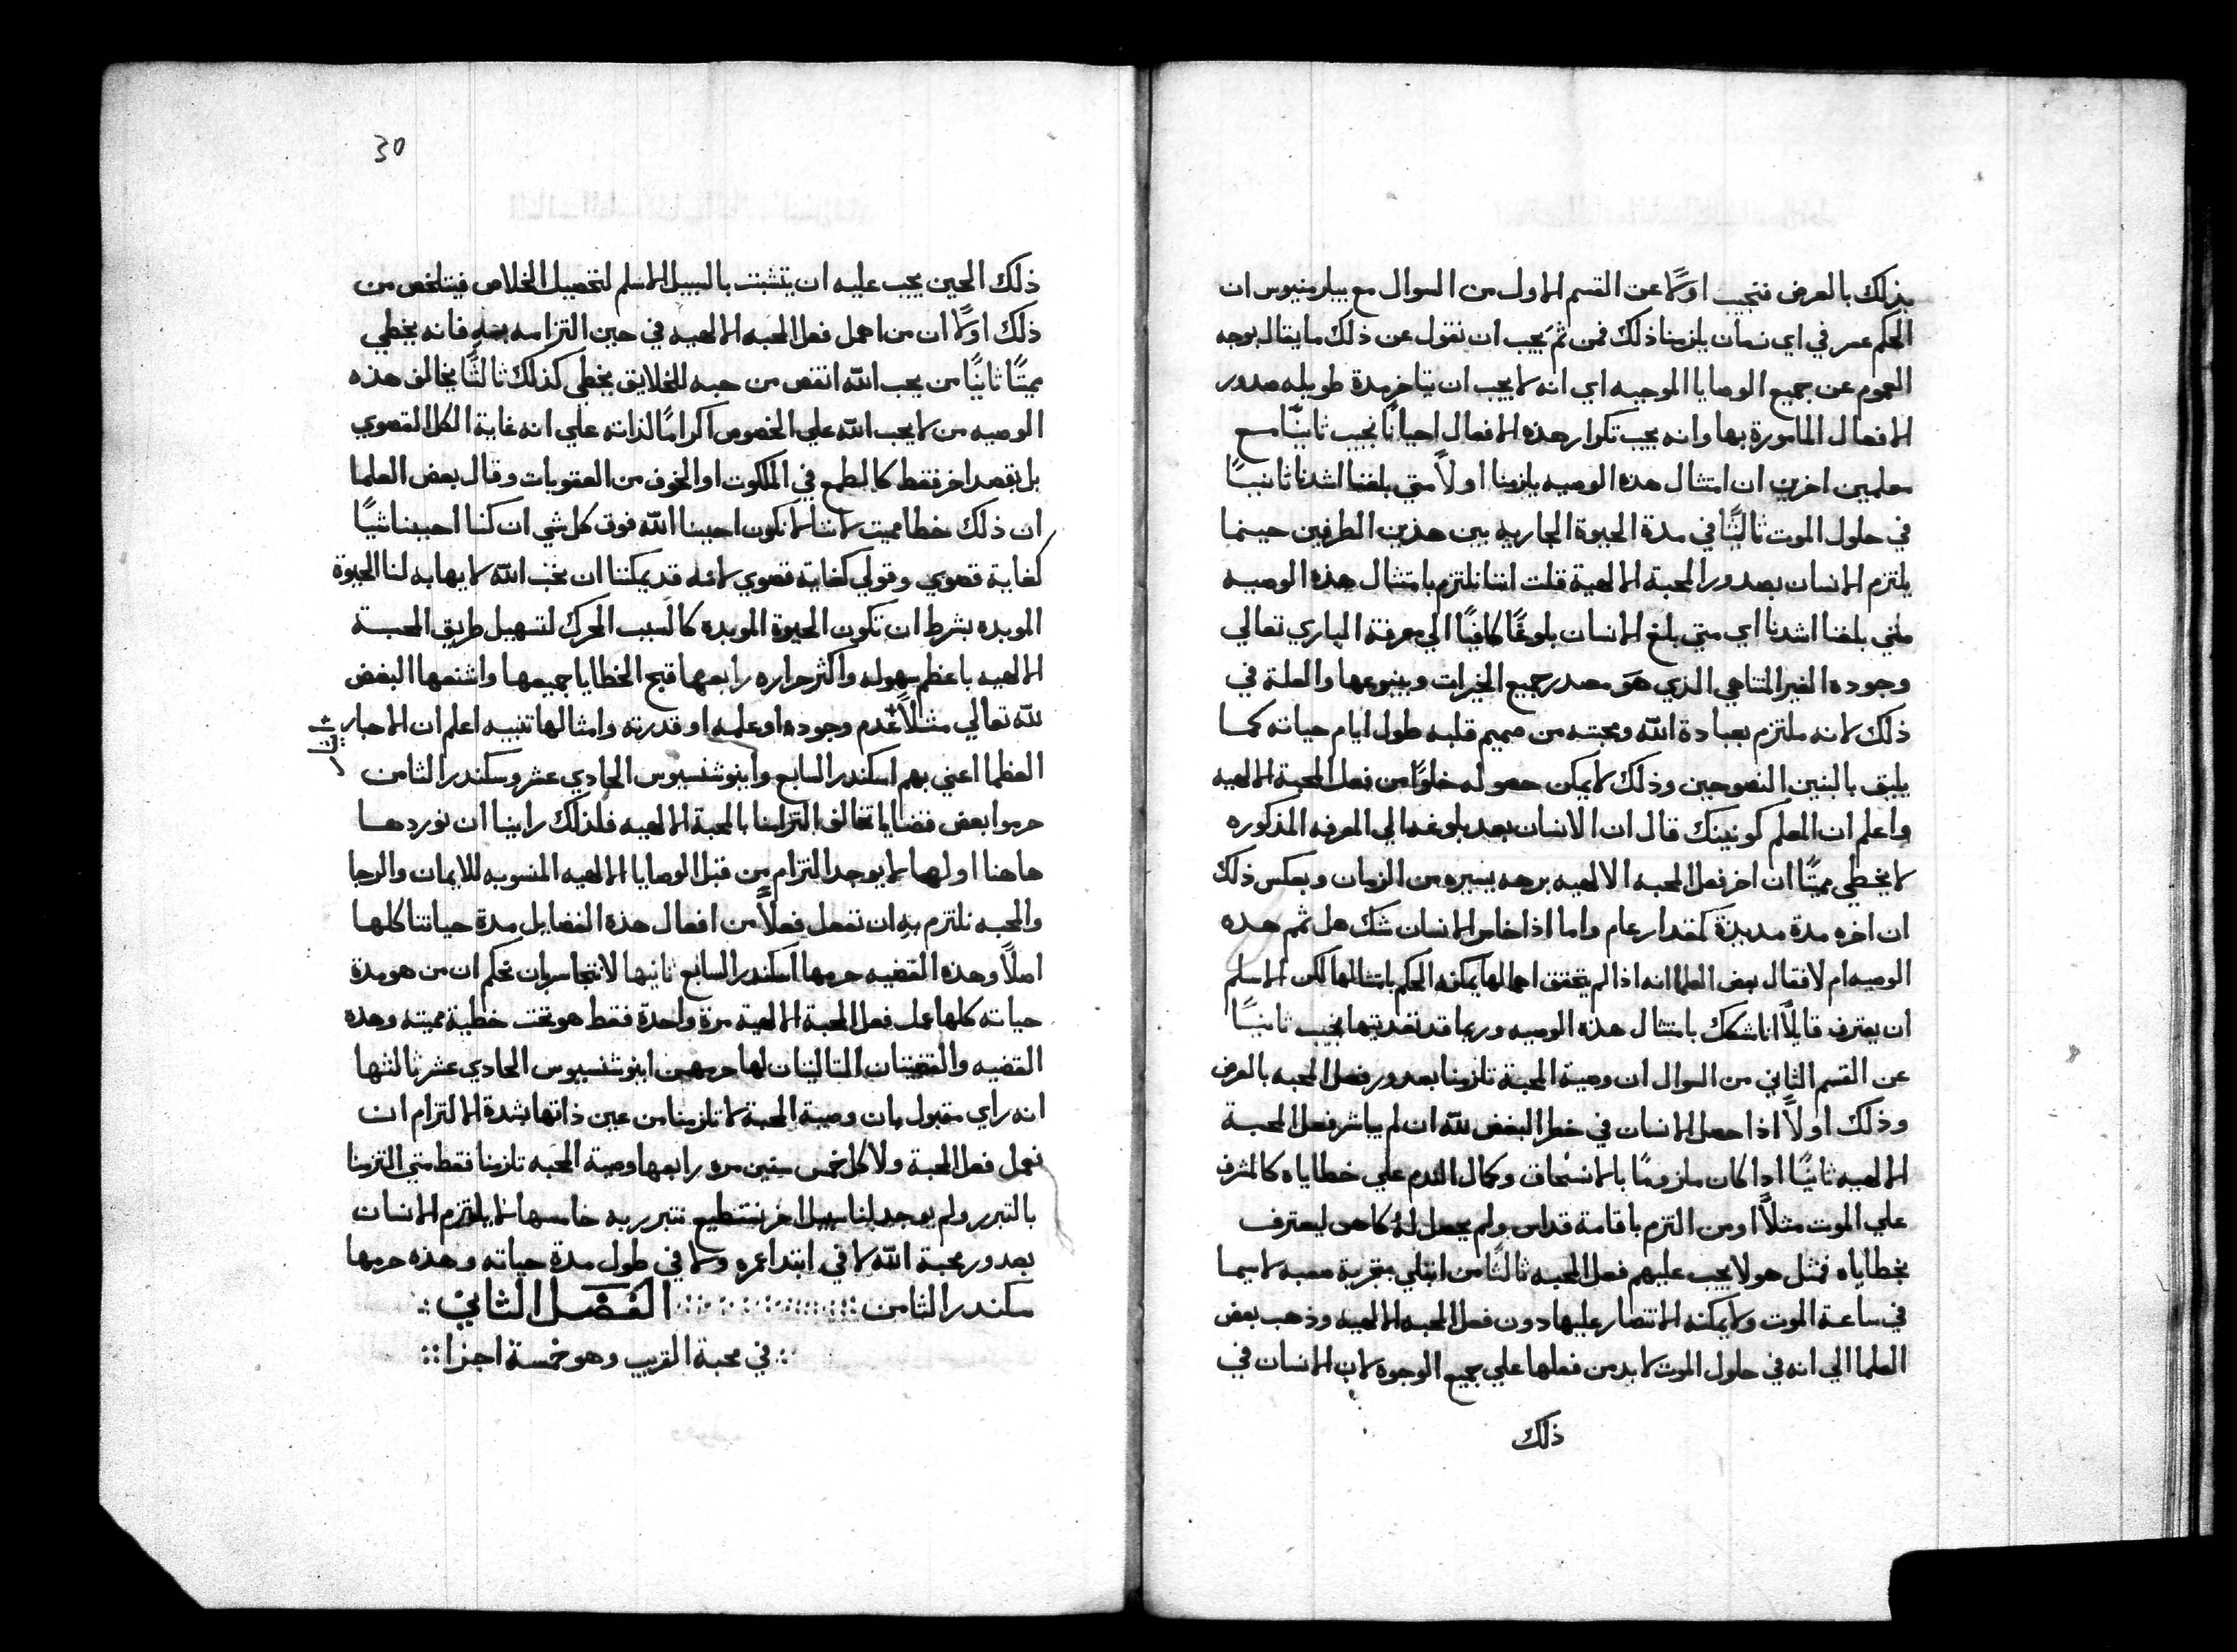 بذلك بالعرض فنجيب اولًا عن القسم الاول من السوال مع بيلرمنيوس ان
الحكم عسر في اي زمان يلزمنا ذلك فمن ثم يجب ان نقول عن ذلك ما يقال بوجه
العموم عن جميع الوصايا الموجبه اي انه لا يجب ان يتاخر مدة طويله صدور
الافعال المامورة بها وانه يجب تكرار هذه الافعال احيانًا نجيب ثانيًا مع
معلمين اخرين ان امتثال هذه الوصيه يلزمنا اولًا متي بلغنا اشدنا ثانيًا
في حلول الموت ثالثًا في مدة الحيوة الجاريه بين هذين الطرفين حينما
يلتزم الانسان بصدور المحبة الالهية قلت اننا نلتزم بامتثال هذه الوصيه
متي بلغنا اشدنا اي متي بلغ الانسان بلوغًا كافيًا الي معرفة الباري تعالي
وجوده الغير المتناهي الذي هو مصدر جميع الخيرات وينبوعها والعلة في
ذلك لانه ملتزم بعبادة الله ومحبته من صميم قلبه طول ايام حياته كما
يليق بالبنين النصوحين وذلك لا يمكن حصوله خلوًا من فعل المحبة الالهيه
واعلم ان المعلم كونينك قال ان الانسان بعد بلوغه الي المعرفه المذكوره
لا يخطي مميتًا ان اخر فعل المحبه الالهيه برهه يسيره من الزمان وبعكس ذلك
ان اخره مدة مديدة كمقدار عام واما اذا خامر الانسان شك هل تمم هذه
الوصيه ام لا فقال بعض العلما انه اذا لم يتحقق اهمالها يمكنه الحكم بامتثالها لكن الاسلم
ان يعترف قايلًا انا شكك بامتثال هذه الوصيه وربما قد تعديتها نجيب ثانيًا
عن القسم الثاني من السوال ان وصية المحبة تلزمنا بصدور فعل المحبه بالعرض
وذلك اولًا اذا حصل الانسان في خطر البغض لله ان لم يباشر فعل المحبة
الالهيه ثانيًا اذا كان ملزومًا بالانسحاق وكمال الندم علي خطاياه كالمشرف
علي الموت مثلًا او من التزم باقامة قداس ولم يحصل له كاهن ليعترف
بخطاياه فمثل هولا يجب عليهم فعل المحبه ثالثًا من ابتلي بتجربة صعبه لاسيما
في ساعة الموت ولا يمكنه الانتصار عليها دون فعل المحبه الالهيه وذهب بعض
العلما الي انه في حلول الموت لا بد من فعلها علي جميع الوجوه لان الانسان في
ذلك
30
ذلك الحين يجب عليه ان يتشبت بالسبيل الاسلم لتحصيل الخلاص فيتلخص من
ذلك اولًا ان من اهمل فعل المحبه الالهيه في حين التزامه به فانه يخطي
مميتًا ثانيًا من يحب الله انقص من حبه للخلايق يخطي كذلك ثالثًا يخالف هذه
الوصيه من لا يحب الله علي الخصوص اكرامًا لذاته علي انه غاية الكل القصوي
بل بقصد اخر فقط كالطمع في الملكوت او الخوف من العقوبات وقال بعض العلما
ان ذلك خطا مميت لاننا لا نكون احببنا الله فوق كل شي ان كنا احببنا شيًا
كغاية قصوي وقولي كغاية قصوي لانه قد يمكننا ان نحب الله لايهابه لنا الحيوة
الموبده بشرط ان تكون الحيوة الموبده كالسبب المحرك لتسهيل طريق المحبة
الالهيه باعظم سهوله واكثر حراره رابعها قبح الخطايا جميعها واشنعها البغض
لله تعالي مثلًا عدم وجوده او علمه او قدرته وامثالها تنبيه اعلم ان الاحبار
العظما اعني بهم اسكندر السابع واينوشنسيوس الحادي عشر وسكندر الثامن
حرموا بعض قضايا تخالف التزامنا بالمحبة الالهيه فلذلك راينا ان نوردها
هاهنا اولها لا يوجد التزام من قبل الوصايا الالهيه المنسوبه للايمان والرجا
والمحبه نلتزم به ان نفعل فعلًا من افعال هذه الفضايل مدة حياتنا كلها
اصلًا وهذه القضيه حرمها اسكندر السابع ثانيها لا نتجاسر بان نحكم ان من هو مدة
حياته كلها عمل فعل المحبة الالهية مرة واحدة فقط هو تحت خطية مميته وهذه
القضيه والقضيتان التاليتان لها حرمهن اينوشنسيوس الحادي عشر ثالثها
انه راي مقبول بان وصية المحبة لا تلزمنا من عين ذاتها بشدة الالتزام ان
نعمل فعل المحبة ولا كل خمس سنين مره رابعها وصية المحبه تلزمنا فقط متي التزمنا
بالتبرر ولم يوجد لنا سبيل اخر نستطيع نتبرر به خامسها لا يلتزم الانسان
بصدور محبة الله لا في ابتدا عمره ولا في طول مدة حياته وهذه حرمها
سكندر الثامن الفصل الثاني
في محبة القريب وهو خمسة اجزا